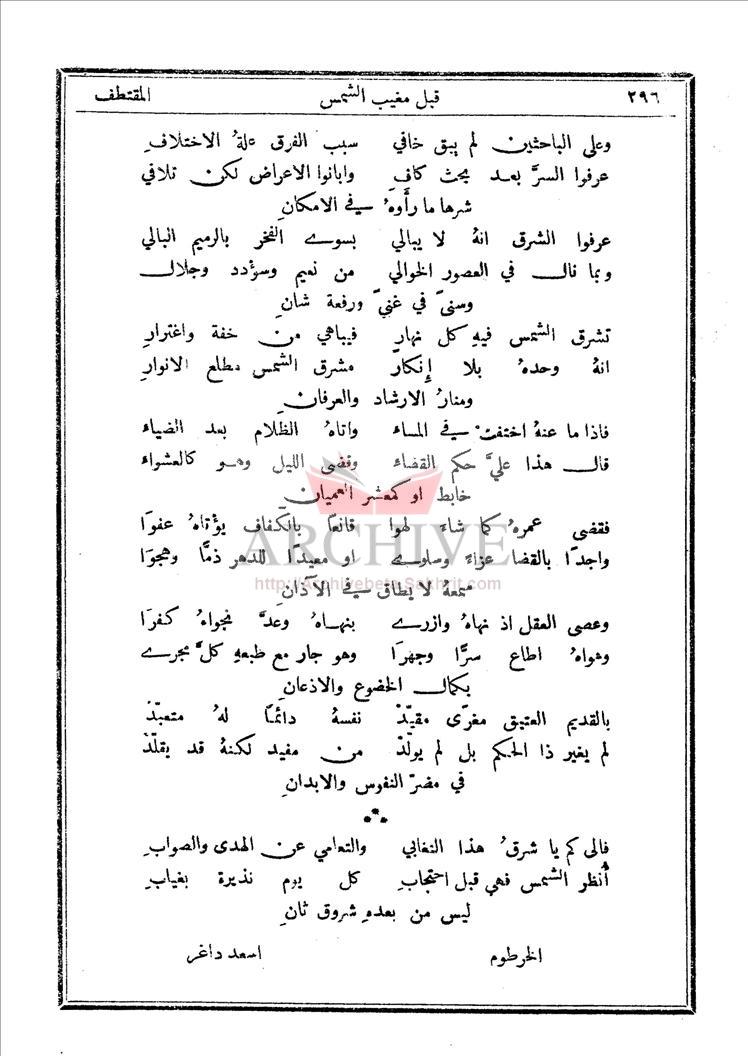 ٢٩٦ قبل مغيب الشمس المقتطف
وعلى الباحثين لم يبق خافي سبب الفرق علة الاختلافِ
عرفوا السرَّ بعد بحث كافِ وابانوا الاعراض لكن تلافي
شرها ما رأَوهُ في الامكانِ
عرفوا الشرق انهُ لا يبالي بسوى الفخر بالرميم البالي
وبما نال في العصور الخوالي من نعيم وسؤدد وجلال
وسنىً في غنىً ورفعة شانِ
تشرق الشمس فيهِ كل نهارِ فيباهي من خفة واغترارِ
انهُ وحدهُ بلا إِنكارِ مشرق الشمس مطلع الانوارِ
ومنارُ الارشاد والعرفانِ
فاذا ما عنهُ اختفتْ في المساء واتاهُ الظلام بعد الضياء
قال هذا عليَّ حكم القضاء وقضى الليل وهو كالعشواء
خابط او كمعشر العميان
فقضى عمرهُ كما شاءَ لهوا قانعًا بالكفاف يؤتاهُ عفوا
واجدًا بالقضا عزاءً وسلوى او معيدًا للدهر ذمًّا وهجوا
ARCHIVE
http://Archivebeta.Sakhrit.com
سمعهُ لا يطاق في الآذان
وعصى العقل اذ نهاهُ وازرى بنهاهُ وعدَّ نجواهُ كفرا
وهواهُ اطاع سرًّا وجهرا وهو جار مع طبعهِ كلَّ مجرى
بكمال الخضوع والاذعانِ
بالقديم العتيق مغرًى مقيّدْ نفسهُ دائمًا لهُ متعبّدْ
لم يغير ذا الحكم بل لم يولّدْ من مفيد لكنهُ قد يقلّدْ
في مضرّ النفوس والابدانِ
***
فالى كم يا شرقُ هذا التغابي والتعامي عن الهدى والصوابِ
أُنظر الشمس فهي قبل احتجابِ كل يوم نذيرة بغيابِ
ليس من بعدهِ شروق ثانِ
الخرطوم اسعد داغر